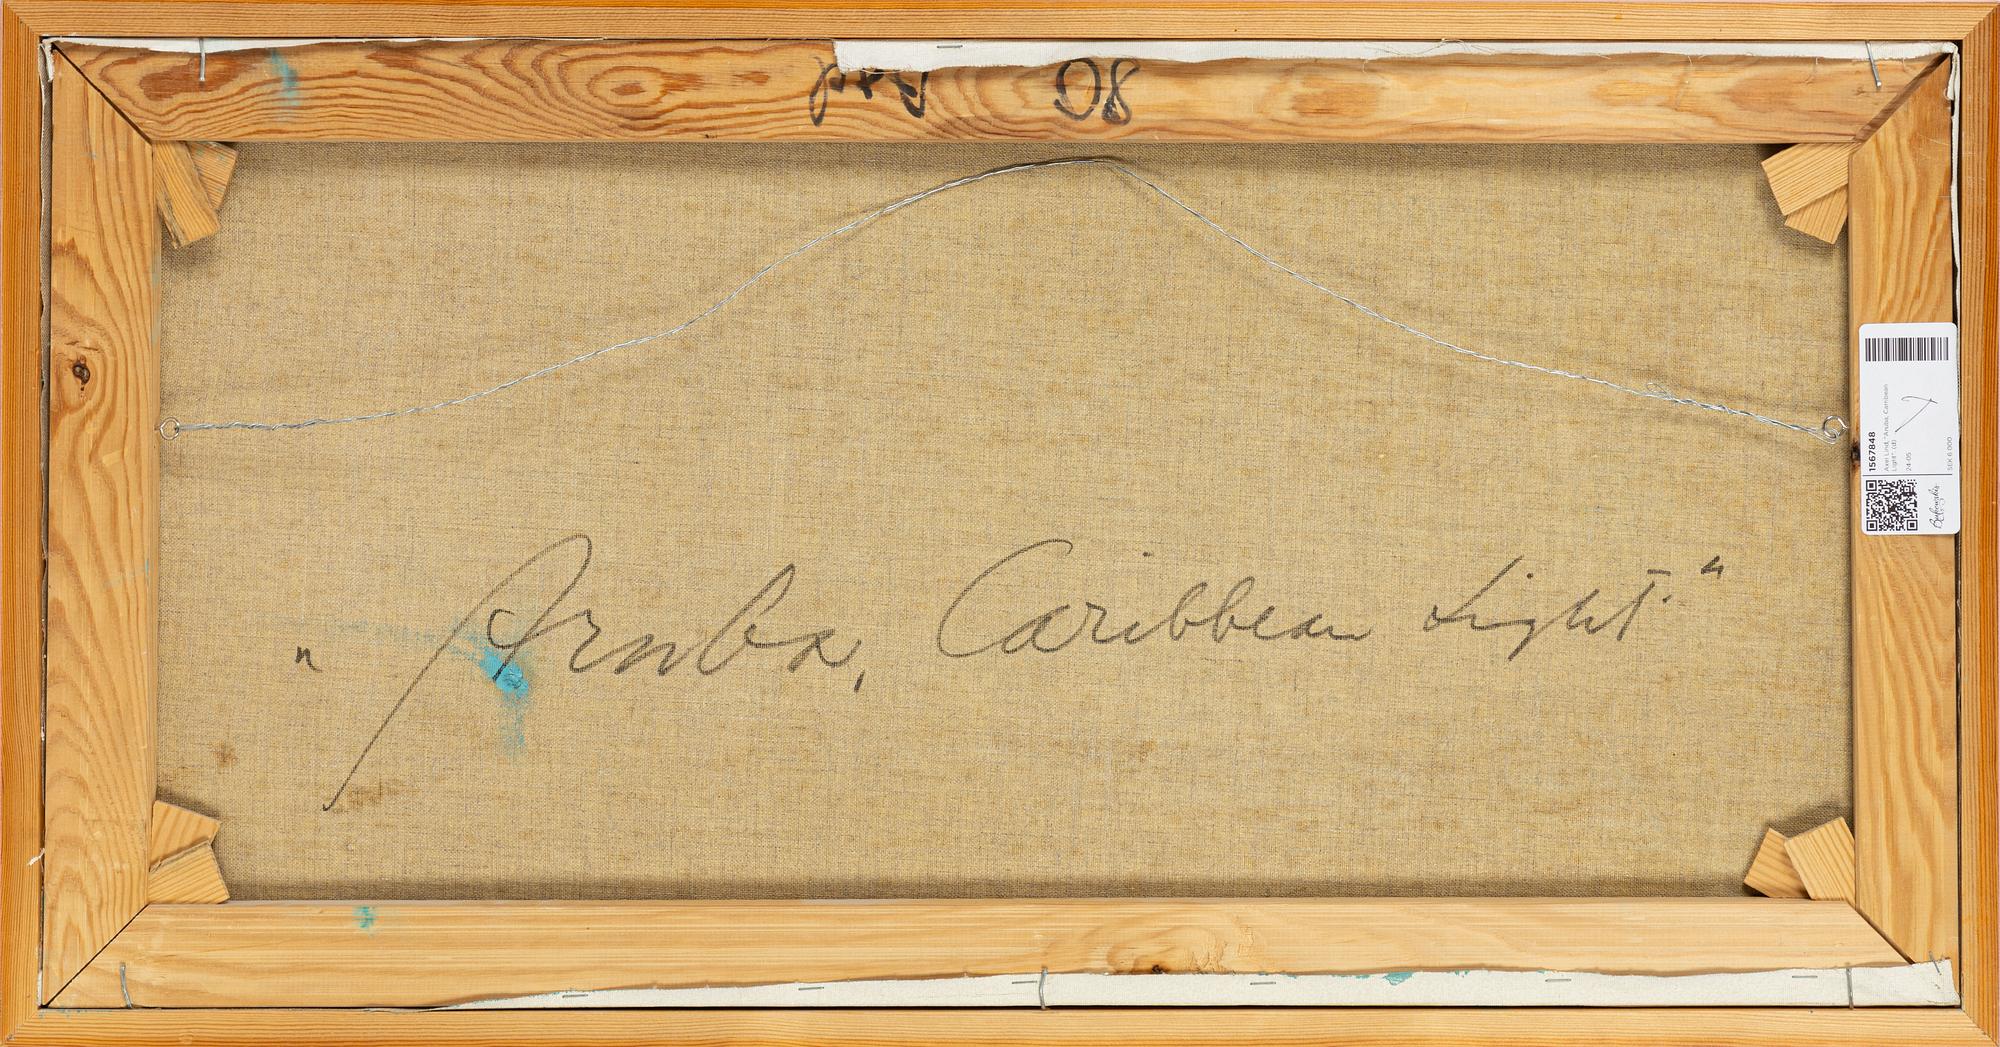 80
„Aruba, Caribbean Light."
1567848
Axel Lind, "Aruba, Caribbean
Light". (d)
24-05
SEK 6 000
Bukowskis